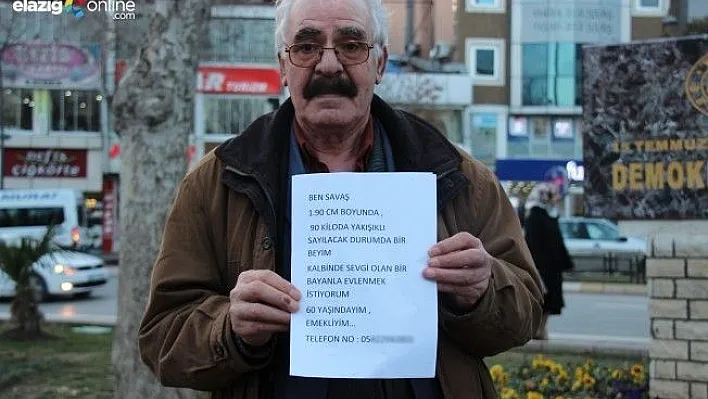 elazigonline
.com
AR TURİZM
nefis
çiğköfte
15 TEMMUZ
DEMOK
BEN SAVAŞ
1.90 CM BOYUNDA ,
90 KİLODA YAKIŞIKLI
SAYILACAK DURUMDA BİR
BEYİM
KALBİNDE SEVGİ OLAN BİR
BAYANLA EVLENMEK
İSTİYORUM
60 YAŞINDAYIM ,
EMEKLİYİM...
TELEFON NO : 05